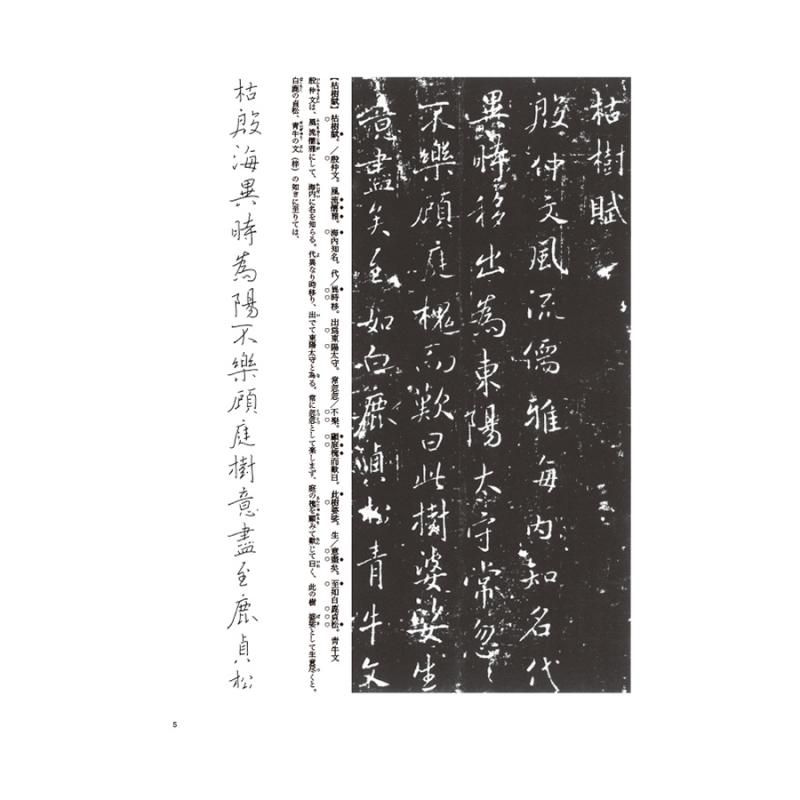 枯樹賦
殷仲文風流儒雅海内知名代
異時移出為東陽太守常忽〻
不樂顧庭槐而歎曰此樹婆娑生
意盡矣至如白鹿貞松青牛文
【枯樹賦】枯樹賦。／殷仲文。風流儒雅。海内知名。代／異時移。出爲東陽太守。常忽忽／不樂。顧庭槐而歎曰。此樹婆娑。生／意盡矣。至如白鹿貞松。青牛文
殷仲文は、風流儒雅にして、海内に名を知らる。代異なり時移り、出でて東陽太守と為る。常に忽忽として楽しまず、庭の槐を顧みて歎じて曰く、此の樹 婆娑として生意尽くと。
白鹿の貞松、青牛の文（梓）の如きに至りては、
枯殷海異時為陽不樂顧庭樹意盡至鹿貞松
5